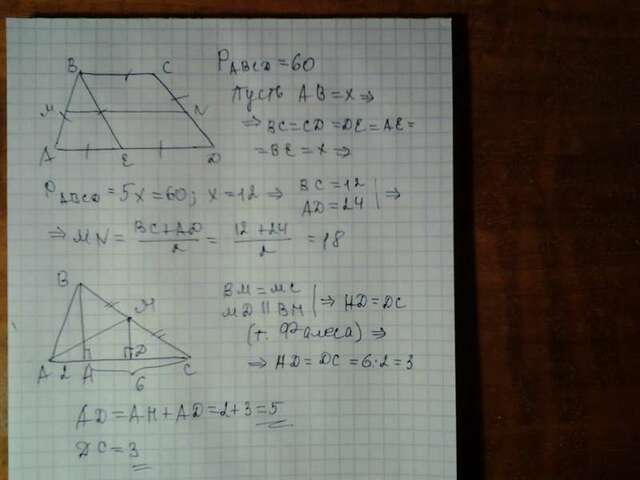 B C
M N
A E D
P ABCD = 60
Пусть AB = x ⇒
⇒ BC = CD = DE = AE =
= BE = x ⇒
P ABCD = 5x = 60; x = 12 ⇒ BC = 12
AD = 24 | ⇒
⇒ MN = BC + AD / 2 = 12 + 24 / 2 = 18
B
M
A 2 H D C
6
BM = MC
MD || BH | ⇒ HD = DC
(т. Фалеса) ⇒
⇒ HD = DC = 6:2 = 3
AD = AH + AD = 2 + 3 = 5
DC = 3